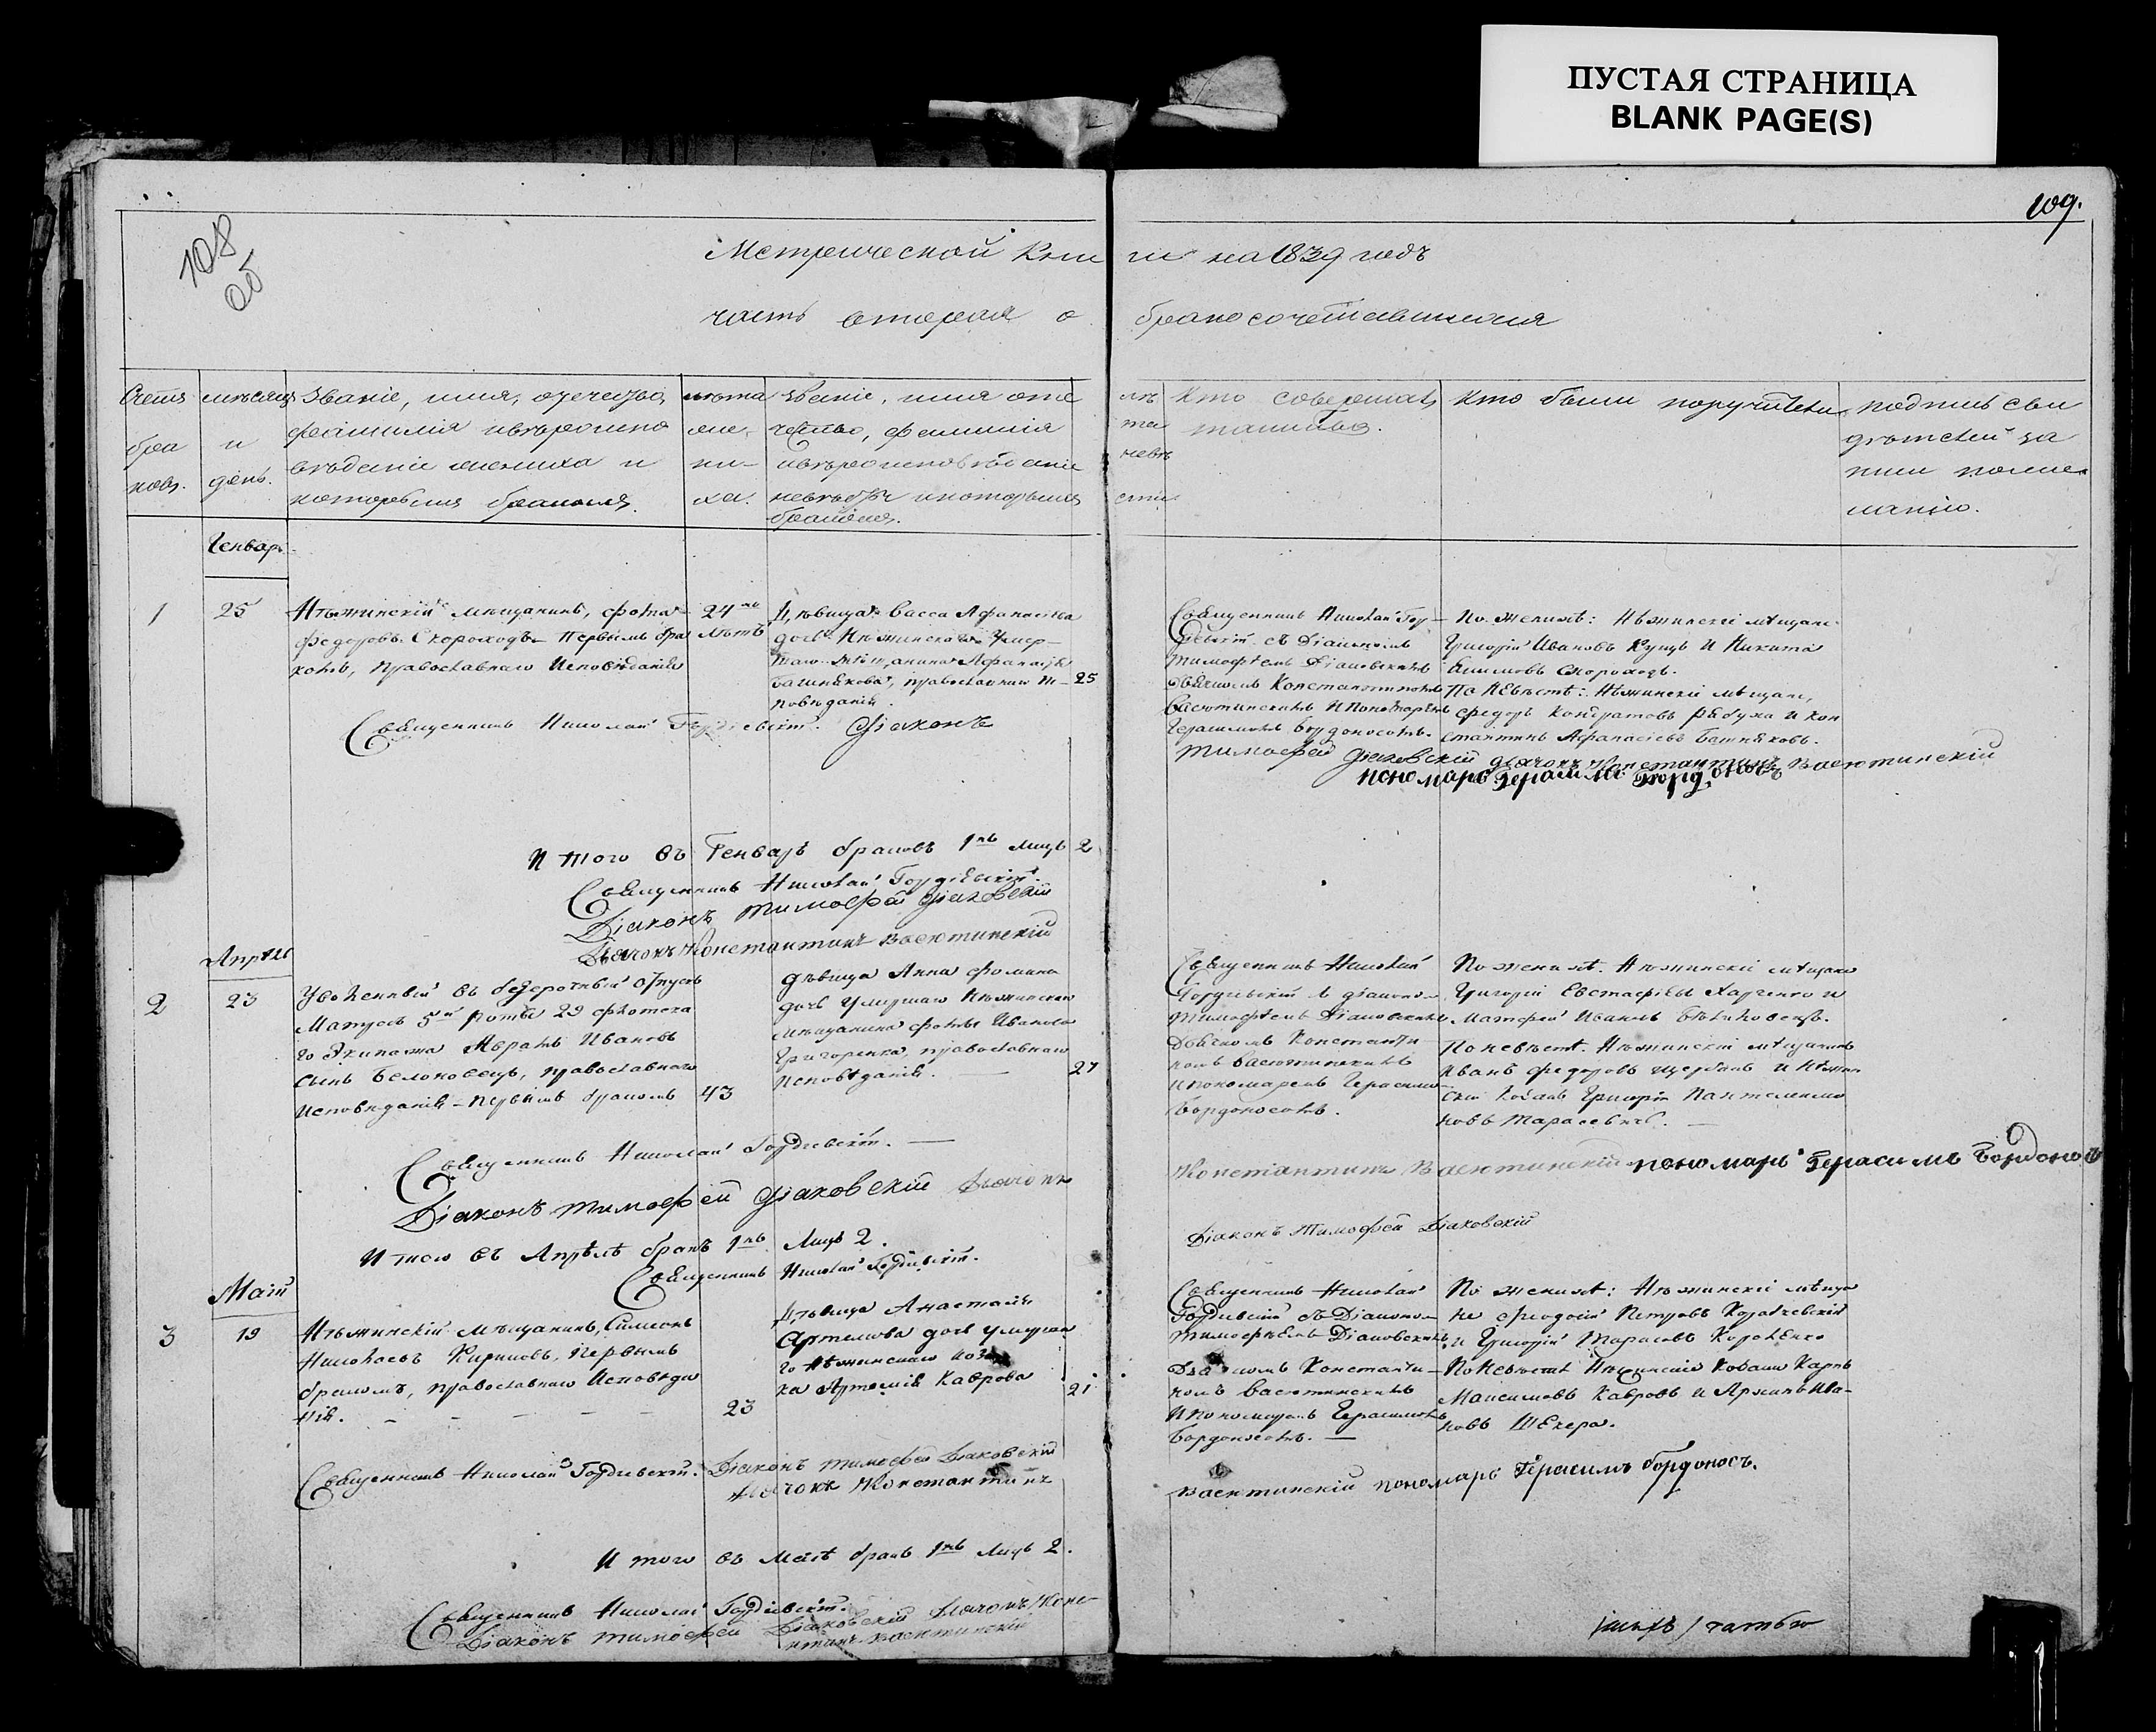 ПУСТАЯ СТРАНИЦА
BLANK PAGE(S)
109.
108
об
Метрической Кни ги на 1839 годъ
часть вторая о бракосочетавшихся
Счетъ бра ковъ.
мѣсяцъ и день.
Званіе, имя, отчество,
фамилія и вѣроиспо
вѣданіе жениха и
которымъ бракомъ.
лѣта
же-
ни-
ха.
Званіе, имя отe
чество, фамилія
и вѣроисповѣданіе
невѣсты и которымъ
бракомъ.
лѣ
та
невѣ
сты
Кто совершалъ
таинство.
Кто были поручители
подпись сви
дѣтелей за
писи по же
ланію.
Генварь
1
25
Нѣжинскій мѣщанинъ, Фома
Федоровъ Скороходъ Первымъ бра
комъ, православнаго Исповѣданія
24
лѣтъ
Дѣвица Васса Афанасіева
дочь Нѣжинскаго Умер-
шаго Мѣщанина Афанасія
Башнякова, православнаго Ис-
повѣданія.
25
Священникъ Николай Гор-
дѣевскій съ Діакономъ
Тимофѣемъ Діаковскимъ
Дьячкомъ Константиномъ
Васютинскимъ И Пономаремъ
Герасимомъ Бордоносомъ.
По женихѣ: Нѣжинскіе мѣщане
Григорій Ивановъ Куцъ И Никита
Акимовъ Скороходъ.
По Невѣстѣ: Нѣжинскіе мѣщане,
Федоръ Кондратовъ Рябуха И Кон
стантинъ Афанасіевъ Башняковъ.
Священникъ Николай Гордѣевскій. Діаконъ
Тимофей Діаковскій дьячокъ Константинъ Васютинскій
пономарь Герасимъ Бордоносъ
И того въ Генварѣ браковъ 1нъ лицъ 2
Священникъ Николай Гордѣевскій.
Діаконъ Тимофей Діаковскій
Дьячокъ Константинъ Васютинскій
Апрѣль
2
23
Уволенный въ безсрочный отпускъ
Матросъ 5й Роты 29 флотска
го Экипажа Абрамъ Ивановъ
сынъ Белоковецъ, православнаго
Исповѣданія - Первымъ бракомъ
43
Дѣвица Анна Фомина
дочь Умершаго Нѣжинскаго
мѣщанина Фомы Иванова
Григоренка, православнаго
Исповѣданія.
27
Священникъ Николай
Гордѣевскій съ діакономъ
Тимофѣемъ Діаковскимъ
Дьячкомъ Константи
номъ Васютинскимъ
И пономаремъ Герасимо
Бордоносомъ.
По женихѣ. Нѣжинскіе мѣщане
Григорій Евстафіевъ Харченко и
Матфей Ивановъ Бѣлаковецъ.
По невѣстѣ. Нѣжинскіе мѣщанинъ
Иванъ Федоровъ Щербакъ и Нѣжин
скій Козакъ Григорій Пантелеимо
новъ Тарасевичъ.
Священникъ Николай Гордѣевскій.
Діаконъ Тимофей Діаковскій Дьячокъ
Константинъ Васютинскій пономарь Герасимъ Бордонос
Итого въ Апрѣлѣ бракъ 1нъ Лицъ 2.
Діаконъ Тимофей Діаковскій
Священникъ Николай Гордѣевскій.
Май
3
19
Нѣжинскій мѣщанинъ, Симеонъ
Николаевъ Кириловъ, Первымъ
бракомъ, православнаго Исповѣда
нія.
23
Дѣвица Анастасія
Артемова дочь умерша
го Нѣжинскаго Коза
ка Артемія Каврова
21
Священникъ Николай
Гордѣевскій съ Діакономъ
Тимофѣемъ Діаковскимъ
Дьячкомъ Константи-
номъ Васютинскимъ
И Пономаремъ Герасимомъ
Бордоносомъ.
По женихѣ: Нѣжинскіе мѣща
не Феодосій Петровъ Козачевскій
и Григорій Тарасовъ Короленко
По Невѣстѣ Нѣжинскіе Козаки Карпъ
Максимовъ Кавровъ и Аржипъ Ива-
новъ Шекера.
Священникъ Николай Гордѣевскій. Діаконъ Тимофей Діаковскій
Дьячокъ Константинъ
Васютинскій пономарь Герасимъ бордоносъ.
И того въ Маѣ бракъ 1нъ Лицъ 2.
Священникъ Николай Гордѣевскій.
Діаконъ Тимофей Діаковскій Дьячокъ Конс-
нтинъ Васютинскій